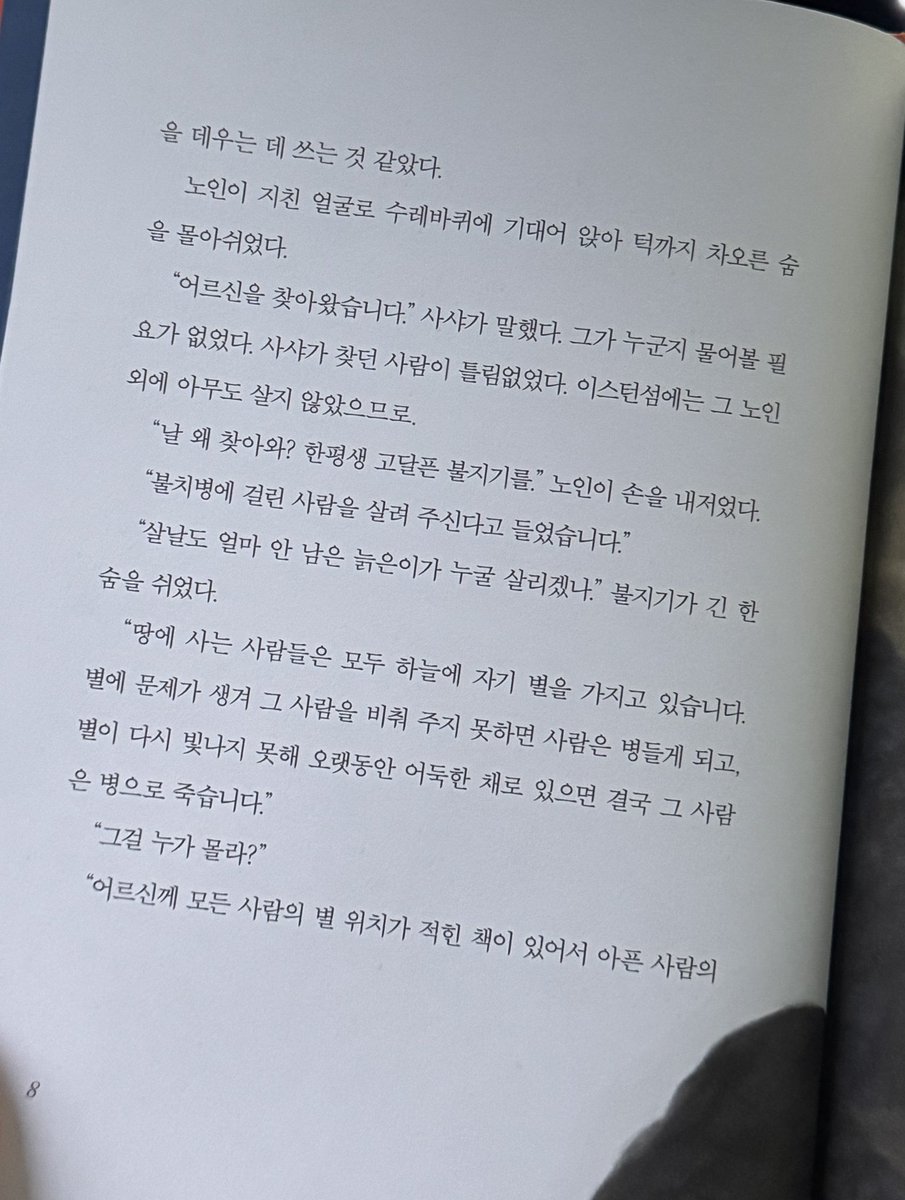 을 데우는 데 쓰는 것 같았다.
노인이 지친 얼굴로 수레바퀴에 기대어 앉아 턱까지 차오른 숨
을 몰아쉬었다.
“어르신을 찾아왔습니다.” 사샤가 말했다. 그가 누군지 물어볼 필
요가 없었다. 사샤가 찾던 사람이 틀림없었다. 이스턴섬에는 그 노인
외에 아무도 살지 않았으므로.
“날 왜 찾아와? 한평생 고달픈 불지기를.” 노인이 손을 내저었다.
“불치병에 걸린 사람을 살려 주신다고 들었습니다.”
“살날도 얼마 안 남은 늙은이가 누굴 살리겠나.” 불지기가 긴 한
숨을 쉬었다.
“땅에 사는 사람들은 모두 하늘에 자기 별을 가지고 있습니다.
별에 문제가 생겨 그 사람을 비춰 주지 못하면 사람은 병들게 되고,
별이 다시 빛나지 못해 오랫동안 어둑한 채로 있으면 결국 그 사람
은 병으로 죽습니다.”
“그걸 누가 몰라?”
“어르신께 모든 사람의 별 위치가 적힌 책이 있어서 아픈 사람의
8